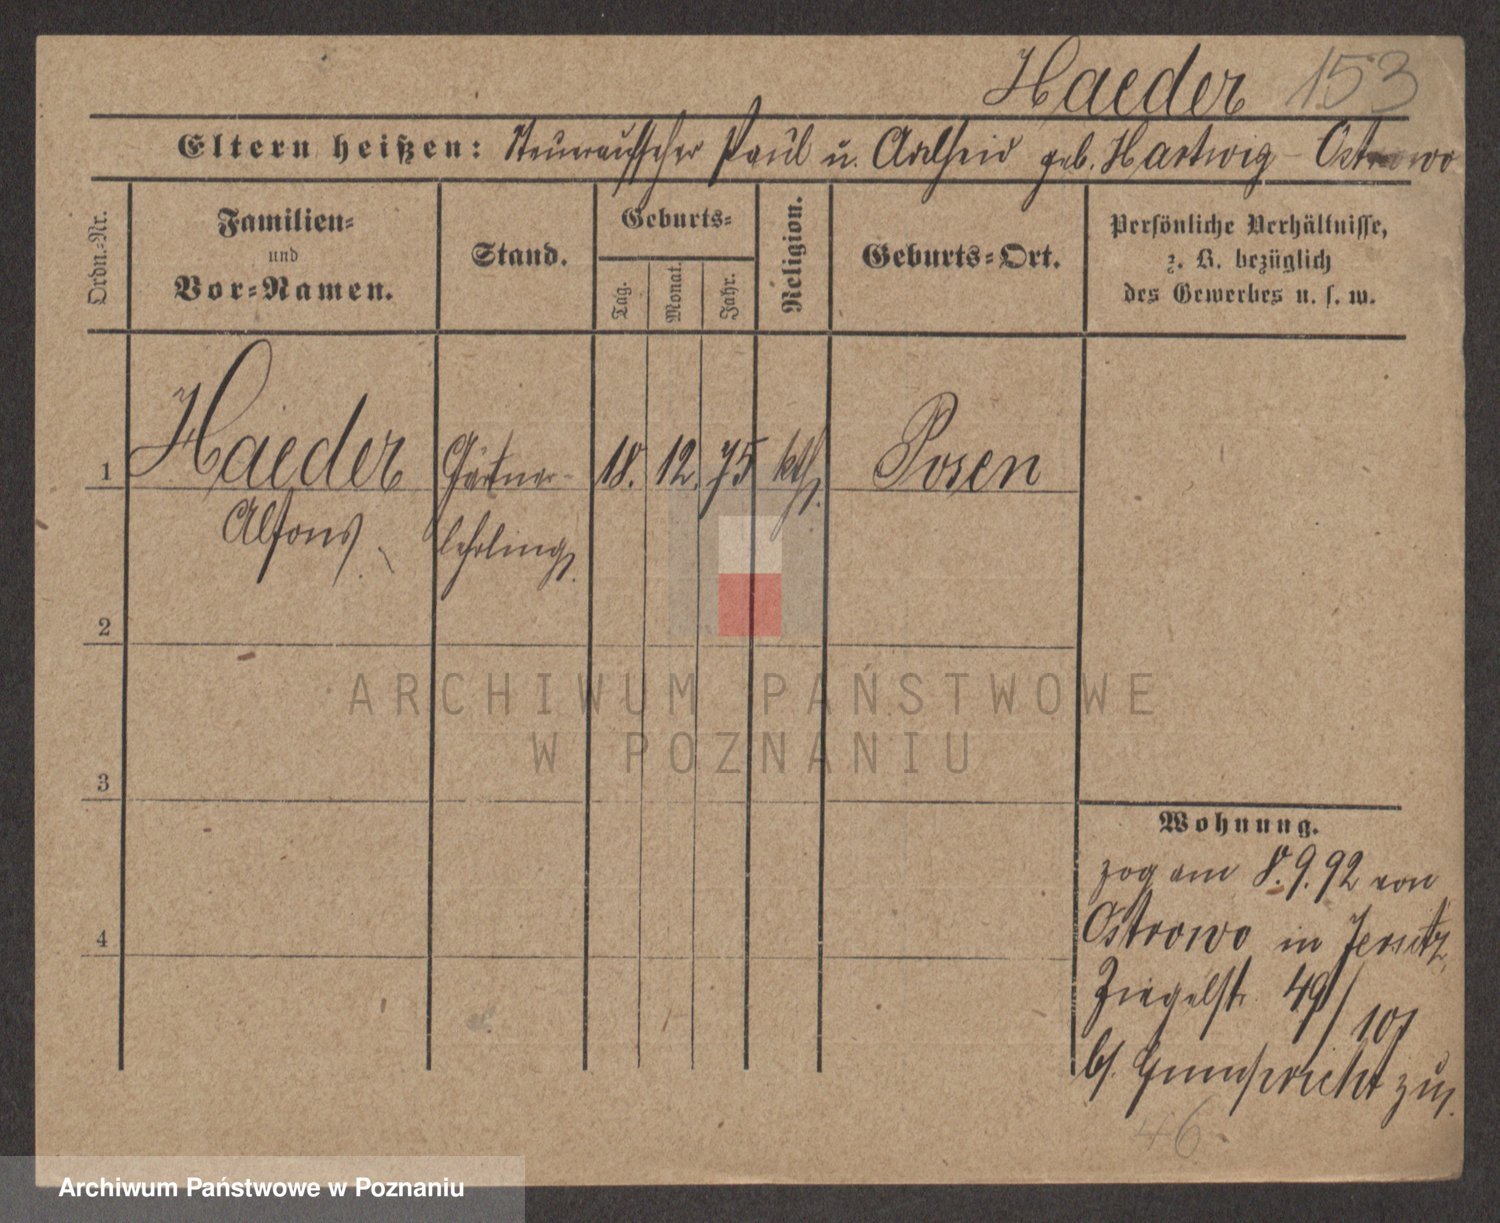 Haeder 153
Eltern heißen: Steueraufseher Paul u. Adelheid geb. Hartwig - Ostrowo
Ordn.-Nr.
Familien-
und
Vor-Namen.
Stand.
Geburts-
Tag.
Monat.
Jahr.
Religion.
Geburts-Ort.
Persönliche Verhältnisse,
z. B. bezüglich
des Gewerbes u. s. w.
1 Haeder Gärtner- 18. 12. 75 kth. Posen
Alfons lehrling
2
3
4
Wohnung.
zog am 8.9.92 von
Ostrowo in Jersitz
Ziegelstr. 49/101
b/. zu
46
ARCHIWUM PAŃSTWOWE
W POZNANIU
Archiwum Państwowe w Poznaniu